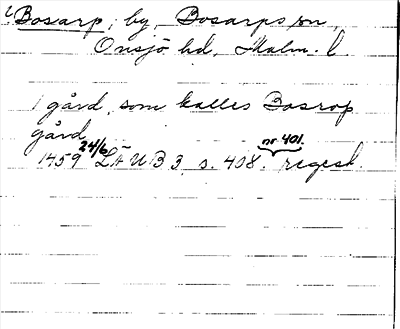 Bosarp, by, Bosarps sn,
Onsjö hd, Malm. l.
1 gård, som kalles Bosrop
gård
1459 24/6 LÄUB 3, s. 408. nr 401. regest.